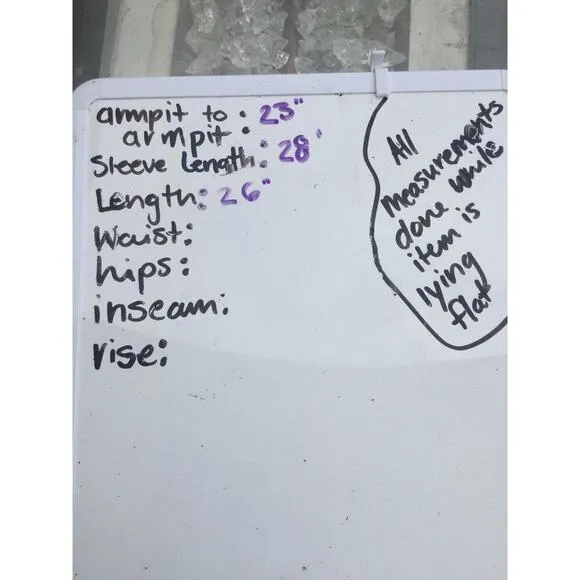 armpit to : 23"
armpit :
Sleeve Length: 28'
Length: 26"
Waist:
hips:
inseam:
rise:
All
measurements
done while
item is
lying
flat